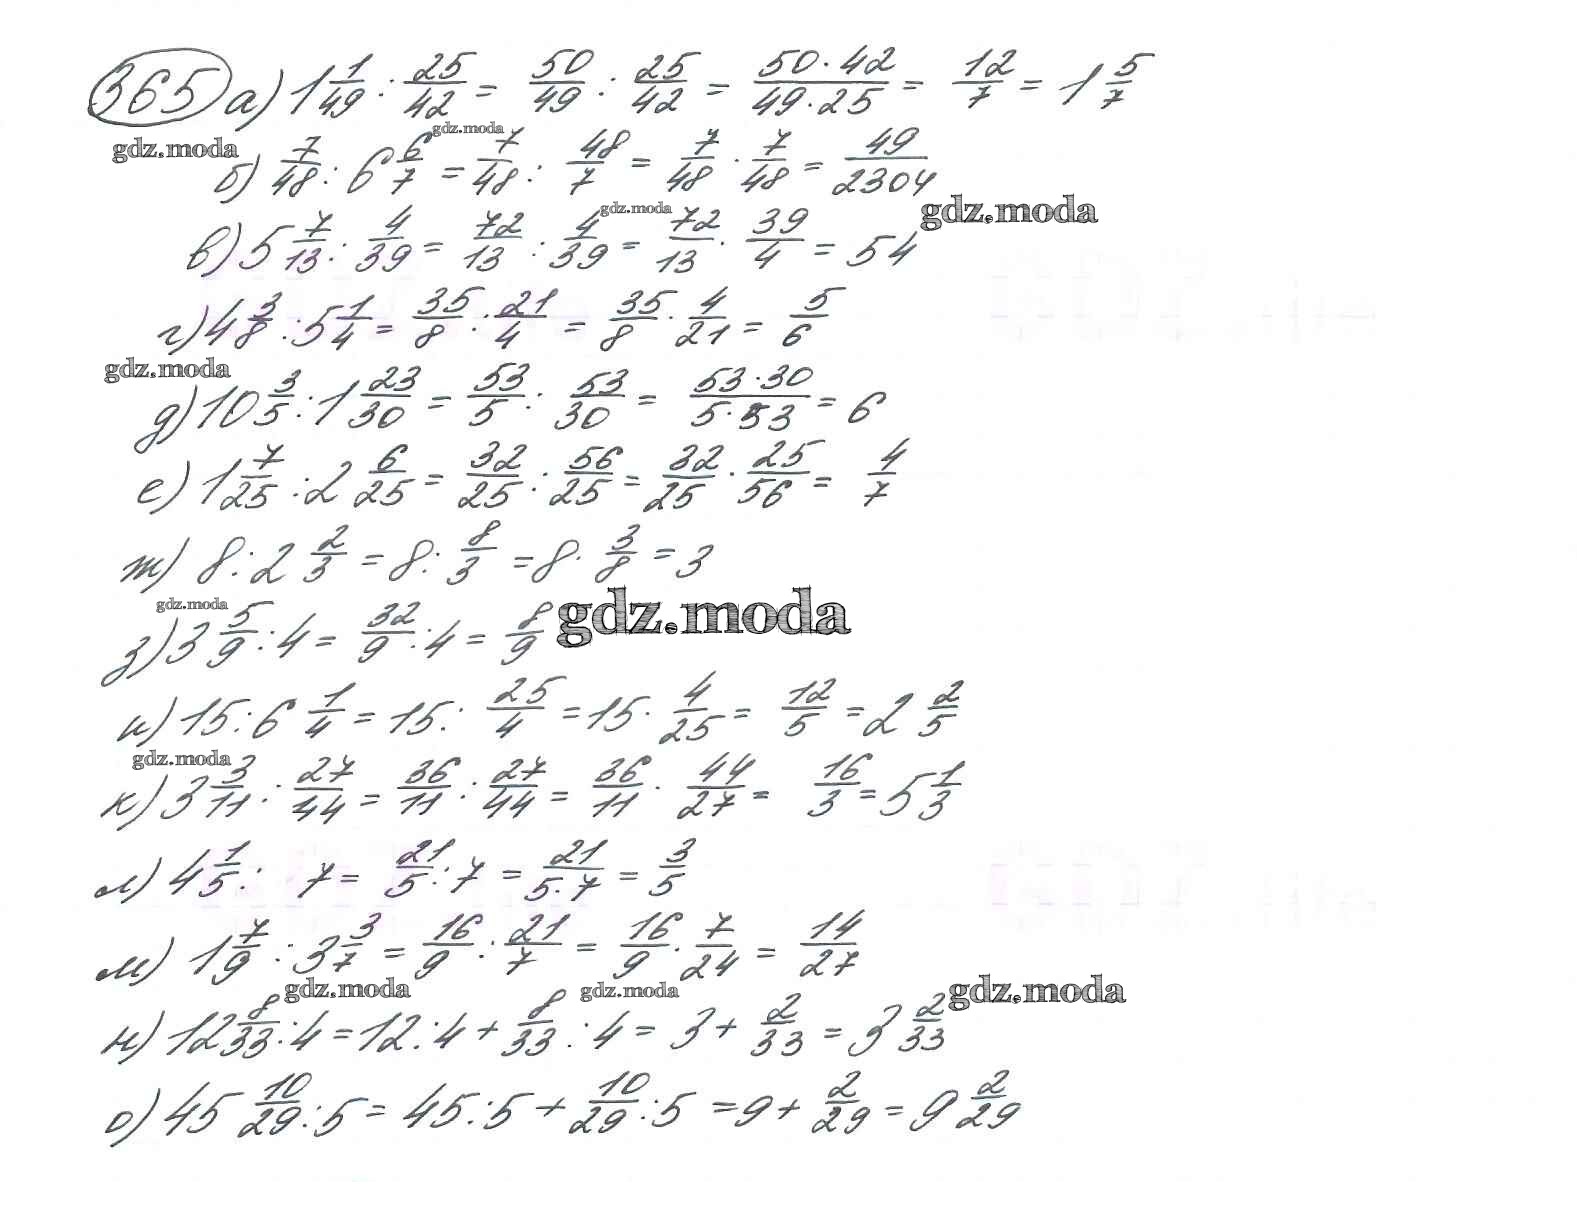 365 а) 1 1/49 : 25/42 = 50/49 : 25/42 = 50·42/49·25 = 12/7 = 1 5/7
gdz.moda gdz.moda
б) 7/48 : 6 6/7 = 7/48 : 48/7 = 7/48 · 7/48 = 49/2304
gdz.moda gdz.moda
в) 5 7/13 : 4/39 = 72/13 : 4/39 = 72/13 · 39/4 = 54
г) 4 3/8 : 5 1/4 = 35/8 : 21/4 = 35/8 · 4/21 = 5/6
gdz.moda
д) 10 3/5 : 1 23/30 = 53/5 : 53/30 = 53·30/5·53 = 6
е) 1 7/25 : 2 6/25 = 32/25 : 56/25 = 32/25 · 25/56 = 4/7
ж) 8 : 2 2/3 = 8 : 8/3 = 8 · 3/8 = 3
gdz.moda gdz.moda
з) 3 5/9 : 4 = 32/9 : 4 = 8/9
и) 15 : 6 1/4 = 15 : 25/4 = 15 · 4/25 = 12/5 = 2 2/5
gdz.moda
к) 3 3/11 : 27/44 = 36/11 : 27/44 = 36/11 · 44/27 = 16/3 = 5 1/3
л) 4 1/5 : 7 = 21/5 : 7 = 21/5·7 = 3/5
м) 1 7/9 : 3 3/7 = 16/9 : 21/7 = 16/9 · 7/24 = 14/27
gdz.moda gdz.moda gdz.moda
н) 12 8/33 : 4 = 12 : 4 + 8/33 : 4 = 3 + 2/33 = 3 2/33
о) 45 10/29 : 5 = 45 : 5 + 10/29 : 5 = 9 + 2/29 = 9 2/29